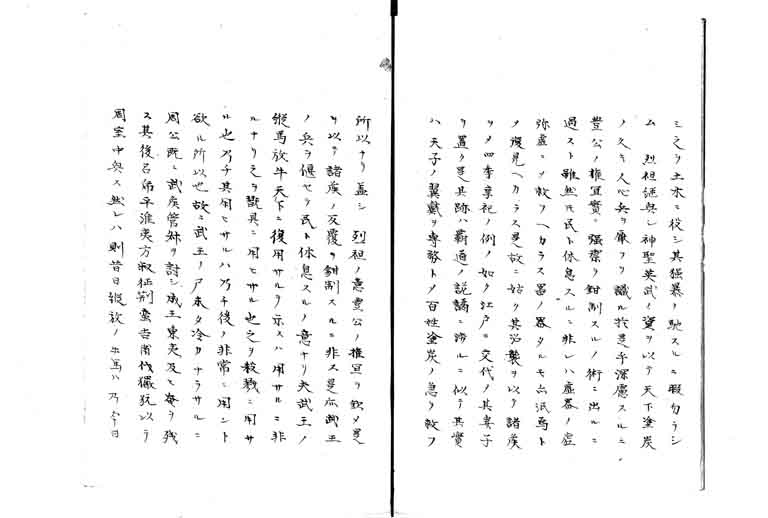 ミ之ヲ土木ニ役シ其強暴ヲ馳スルニ暇勿ラシ
ム 烈祖継興シ神聖英武ノ資ヲ以テ天下塗炭
ノ久キ人心兵ヲ厭フヲ識ル於是乎深慮スルニ
豊公ノ権宜實ニ強禦ヲ鉗制スルノ術ニ出ルニ
過スト雖然モ民ト休息スルニ非レハ虚器ノ虚
弥虚ニメ救フヘカラス器ノ器タルモ亦泯焉ト
メ復見ヘカラス是故ニ姑ク其沿襲ヲ以テ諸侯
ヲメ四季享祀ノ例ノ如ク江戸ニ交代ノ其妻子
ヲ置ク是其跡ハ覇道ノ説譎ニ渉ルニ似テ其實
ハ天子ノ翼戴ヲ専務トメ百姓塗炭ノ急ヲ救フ
所以ナリ蓋シ 烈祖ノ意豊公ノ権宜ヲ以メ是
ヲ以テ諸侯ノ反覆ヲ鉗制スルニ非ス是亦武王
ノ兵ヲ偃セテ民ト休息スルノ意ナリ夫武王ノ
縦馬放牛天下ニ復用サルヲ示スハ用サルニ非
ルナリ之ヲ翫具ニ用ヒサル也之ヲ殺戮ニ用サ
ル也乃チ其用ヒサルハ乃チ後ノ非常ニ用ント
欲ル所以也故ニ武王ノ尸未タ冷カナラサルニ
周公既ニ武庚管叔ヲ討シ成王東夷及ヒ奄ヲ残
ス其後召常平淮夷方叔征荊蛮吉甫伐玁狁以テ
周室中興ス然レハ則昔日縦放ノ牛馬ハ乃今日